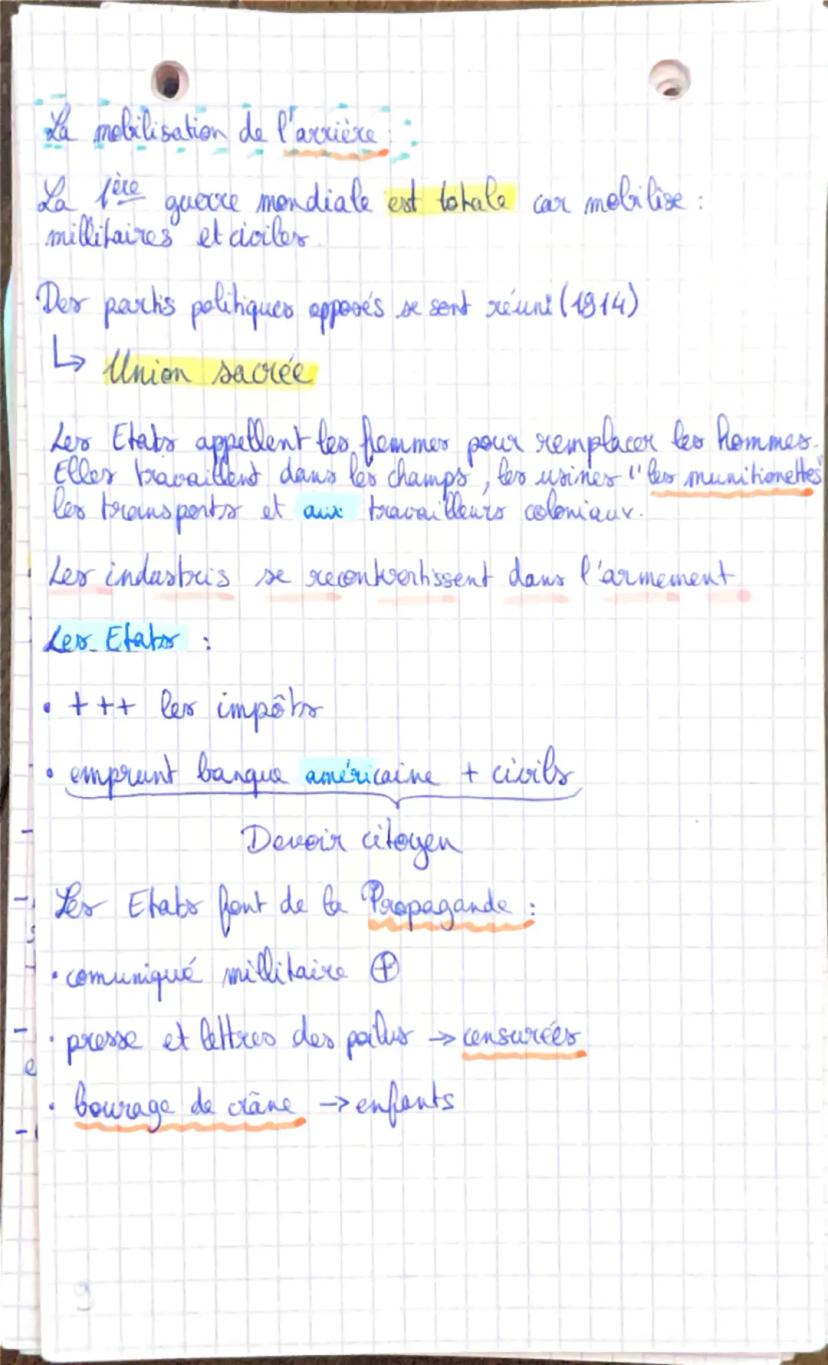 La mobilisation de l'arrière :
La 1ère guerre mondiale est totale car mobilise :
millitaires et civiles.
Des partis politiques opposés se sont réuni (1914)
↳ Union sacrée
Les Etats appellent les femmes pour remplacer les hommes.
Elles travaillent dans les champs, les usines "les munitionettes"
les transports et aux travailleurs coloniaux.
Les industris se recontvertissent dans l'armement
Les Etats :
• +++ les impôts
• emprunt banque américaine + civils
Devoir citoyen
Les Etats font de la Propagande :
• comuniqué millitaire ⊕
• presse et lettres des poilus → censurées
• bourage de crâne → enfants
9